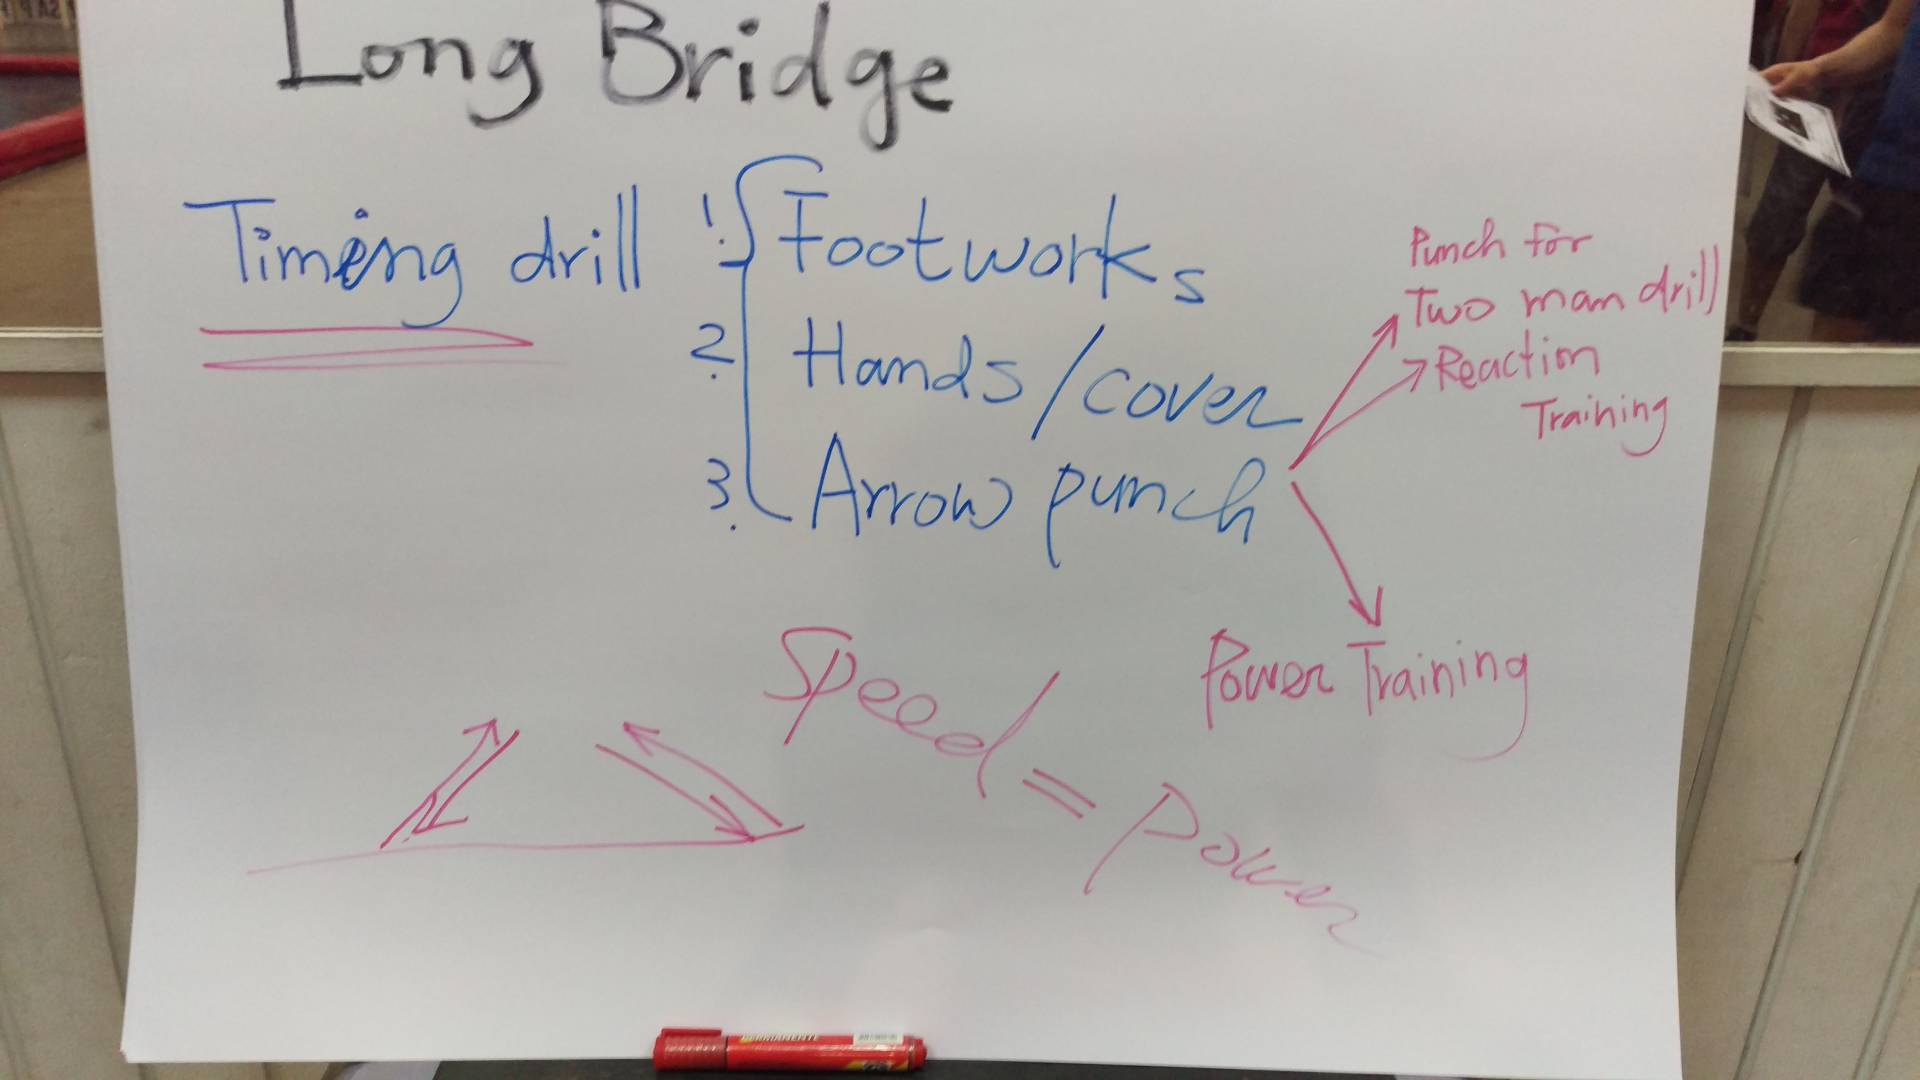 Long Bridge
Timing drill
1. Footworks
2. Hands/cover
3. Arrow punch
Punch for
Two man drill
Reaction
Training
Power Training
Speed = Power
PERMANENTE